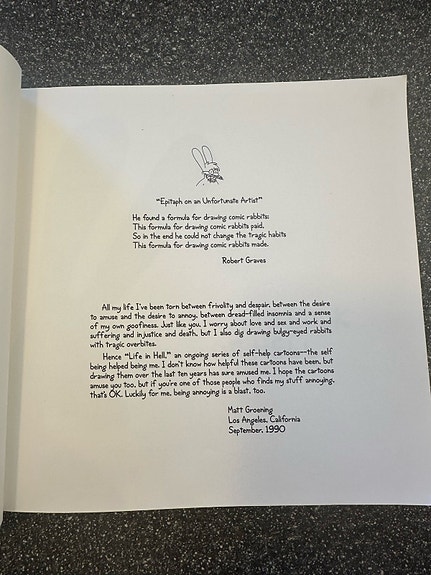 "Epitaph on an Unfortunate Artist"
He found a formula for drawing comic rabbits:
This formula for drawing comic rabbits paid,
So in the end he could not change the tragic habits
This formula for drawing comic rabbits made.
Robert Graves
All my life I've been torn between frivolity and despair, between the desire
to amuse and the desire to annoy, between dread-filled insomnia and a sense
of my own goofiness. Just like you, I worry about love and sex and work and
suffering and injustice and death, but I also dig drawing bulgy-eyed rabbits
with tragic overbites.
Hence "Life in Hell," an ongoing series of self-help cartoons--the self
being helped being me. I don't know how helpful these cartoons have been, but
drawing them over the last ten years has sure amused me. I hope the cartoons
amuse you too, but if you're one of those people who finds my stuff annoying,
that's OK. Luckily for me, being annoying is a blast, too.
Matt Groening
Los Angeles, California
September, 1990